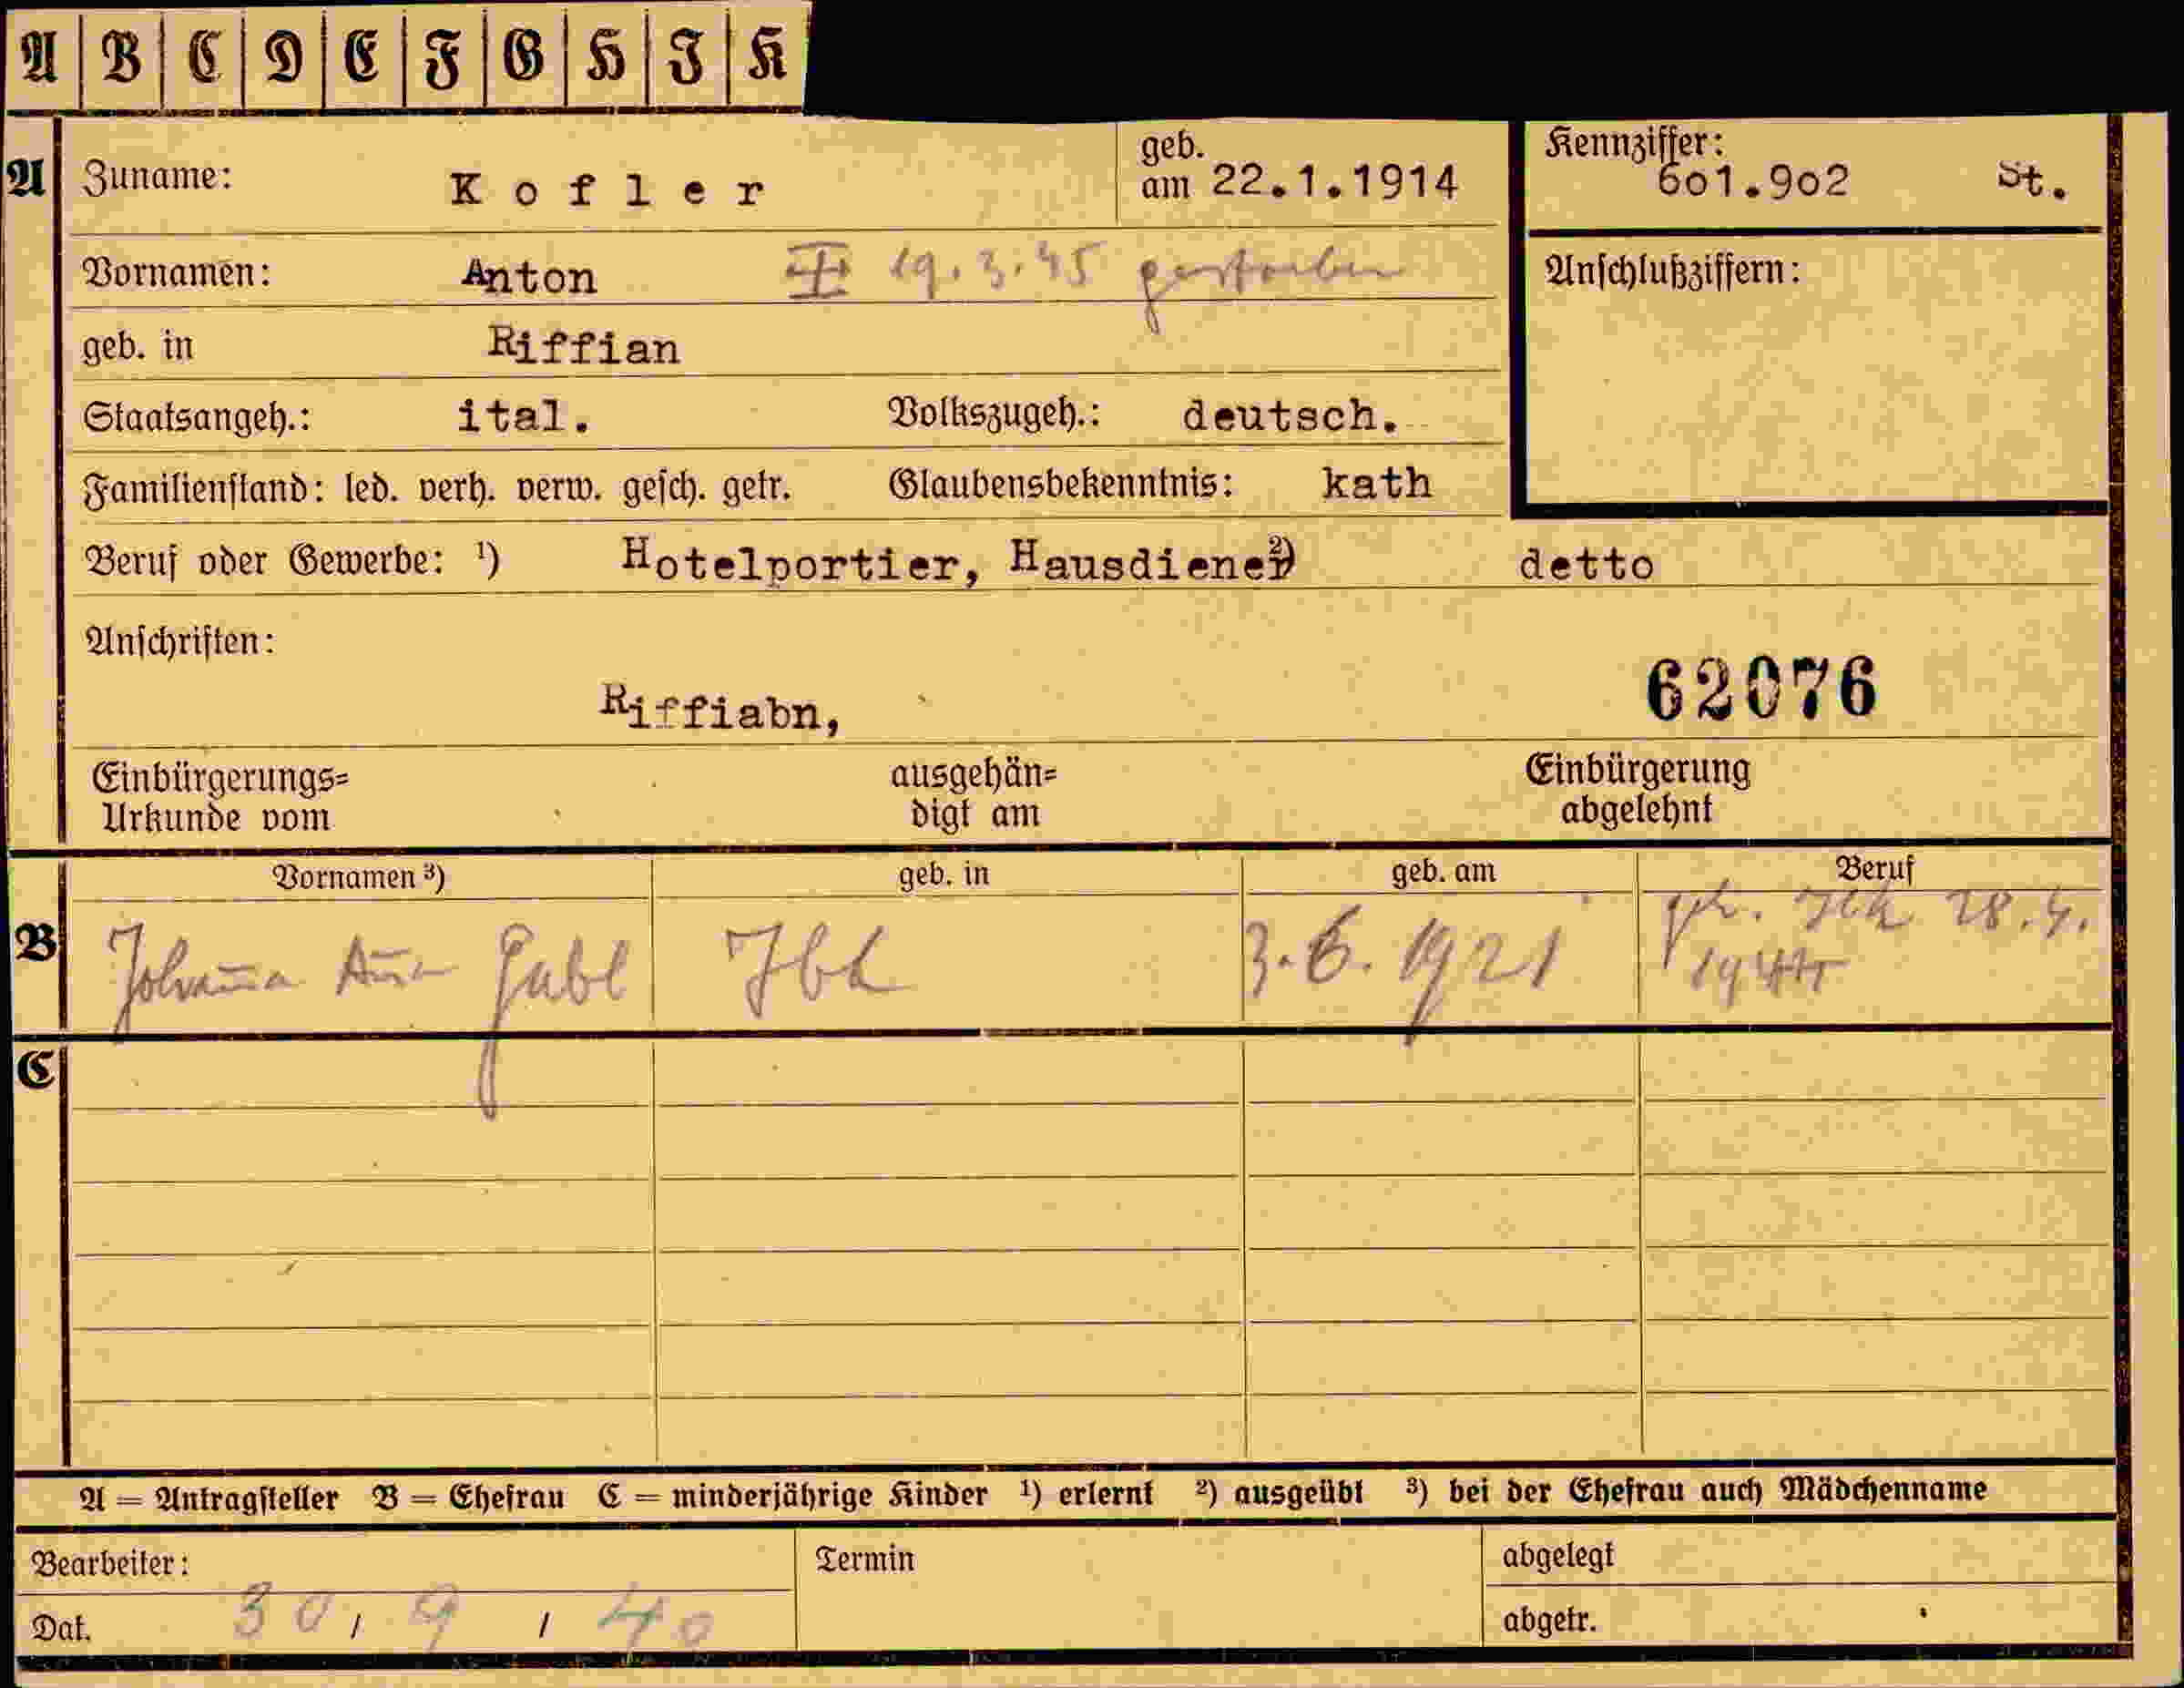 A B C D E F G H I K
A Zuname: Kofler geb. am 22.1.1914 Kennziffer: 601.902 St.
Vornamen: Anton 19.3.45 gestorben Anschlußziffern:
geb. in Riffian
Staatsangeh.: ital. Volkszugeh.: deutsch.
Familienstand: led. verh. verw. gesch. getr. Glaubensbekenntnis: kath
Beruf oder Gewerbe: ¹) Hotelportier, Hausdiener ²) detto
Anschriften:
Riffiabn, 62076
Einbürgerungs= ausgehän= Einbürgerung
Urkunde vom digt am abgelehnt
Vornamen ³) geb. in geb. am Beruf
B Johanna Anna Gabl 3.6.1921 28.4.
1944
C
A = Antragsteller B = Ehefrau C = minderjährige Kinder ¹) erlernt ²) ausgeübt ³) bei der Ehefrau auch Mädchenname
Bearbeiter: Termin abgelegt
Dat. 30/9/40 abgetr.